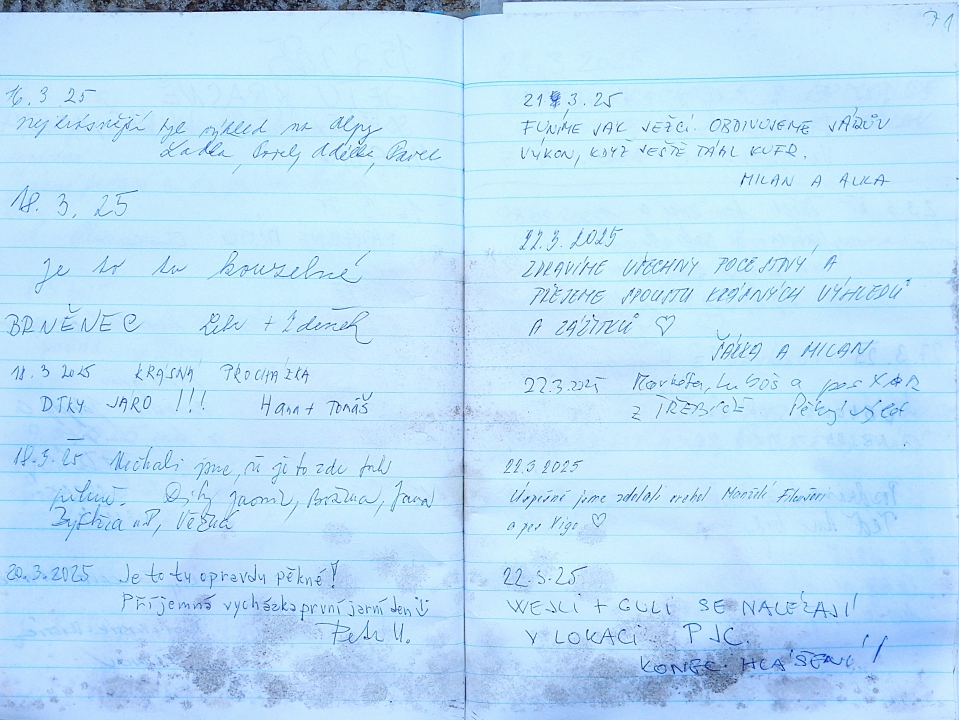 16.3 25
nejkrásnější je výhled na Alpy
Ladka, Pavel
18. 3. 25
je to tu kouzelné
BRNĚNEC + Zdeněk
18.3 2025 KRÁSNÁ PROCHÁZKA
DÍKY JARO !!! Hana + Tomáš
18.3.25 Nečekali jsme, že je to zde tak
pěkné. Jaomír, Božena, Jana
Bystřice n.P., Věžná
20.3.2025 Je to tu opravdu pěkné!
Příjemná vycházka první jarní den
Petr U.
71
21 3.25
FUNÍME JAK JEŽCI. OBDIVUJEME
VÝKON, KDYŽ JEŠTĚ TÁHL KUFR.
MILAN A
22.3. 2025
ZDRAVÍME VŠECHNY POCESTNÝ A
PŘEJEME SPOUSTU KRÁSNÝCH VÝHLEDŮ
A ZÁŽITKŮ ♡
ŠÁRKA A MILAN
22.3.2025 Markéta, Luboš a pes
Z TŘEBÍČE. Pěkný výlet
22.3 2025
Úspěšně jsme zdolali vrchol Manželé
a pes Vigo ♡
22.3.25
WEJLI + GULI SE NALÉZAJÍ
V LOKACI PJC.
KONEC HLÁŠENÍ!